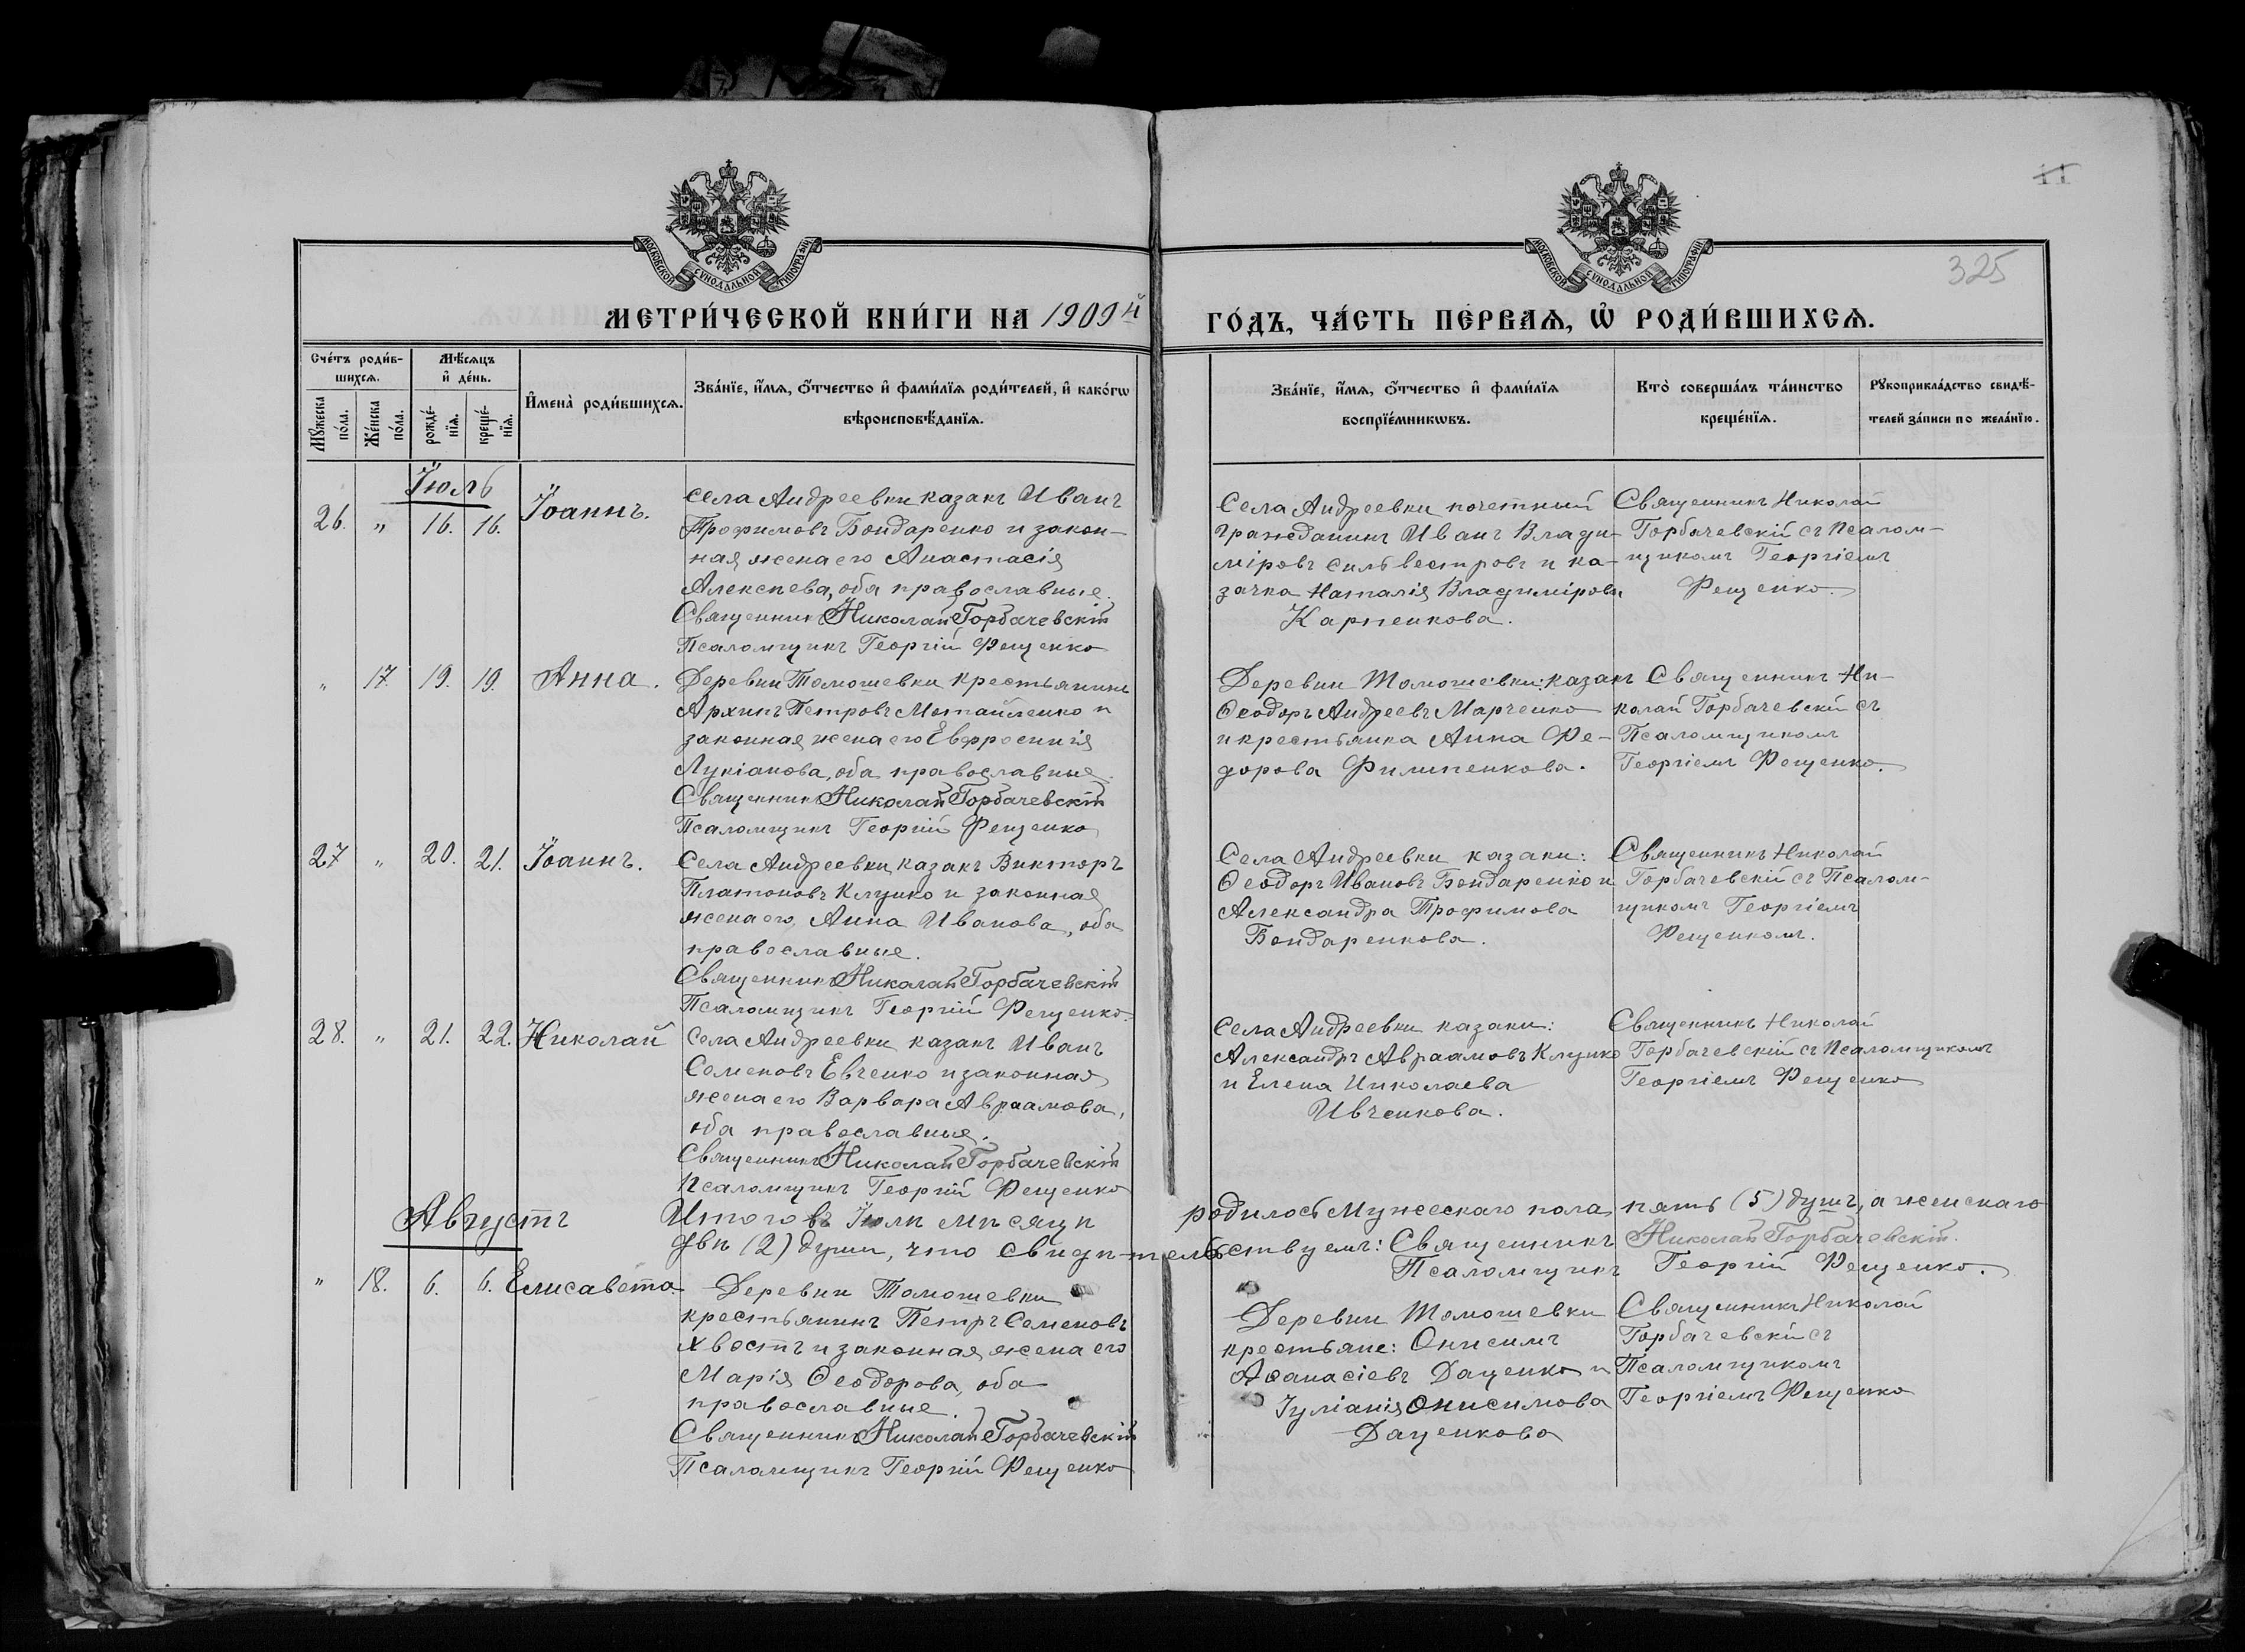 11
325
МОСКОВСКОЙ СѴНОДАЛЬНОЙ ТИПОГРАФІИ
МОСКОВСКОЙ СѴНОДАЛЬНОЙ ТИПОГРАФІИ
МЕТРИ́ЧЕСКОЙ КНИ́ГИ НА 1909й ГО́ДЪ, ЧА́СТЬ ПЕ́РВАѦ, Ѡ҆ РОДИ́ВШИХСѦ.
Сче́тъ роди́в-
шихсѧ.
Мꙋ́жеска
по́ла.
Же́нска
по́ла.
Мѣ́сѧцъ
и҆ де́нь.
рожде́-
нїѧ.
креще́-
нїѧ.
И҆мена̀ роди́вшихсѧ.
Зва́нїе, и҆́мѧ, ѻ҆́тчество и҆ фами́лїѧ роди́телей, и҆ како́гѡ
вѣроисповѣ́данїѧ.
Зва́нїе, и҆́мѧ, ѻ҆́тчество и҆ фами́лїѧ
воспрїе́мникѡвъ.
Кто̀ соверша́лъ та́инство
креще́нїѧ.
Рꙋкоприкла́дство свидѣ́-
телей за́писи по жела́нїю.
Іюль
26. " 16. 16. Іоаннъ.
села Андреевки казакъ Иванъ
Трофимовъ Бондаренко и закон-
ная жена его Анастасія
Алексѣева, оба православные.
Священникъ Николай Горбачевскій
Псаломщикъ Георгій Фещенко
Села Андреевки почетный
гражданинъ Иванъ Влади-
міровъ Сильвестровъ и ка-
зачка Наталія Владимірова
Карпенкова.
Священникъ Николай
Горбачевскій съ Псалом-
щикомъ Георгіемъ
Фещенко.
" 17. 19. 19. Анна.
Деревни Томошевки крестьянинъ
Архипъ Петровъ Мотайленко и
законная жена его Евфросинія
Лукіанова, оба православные.
Священникъ Николай Горбачевскій
Псаломщикъ Георгій Фещенко
Деревни Томошевки: казакъ
Ѳеодоръ Андреевъ Марченко
и крестьянка Анна Фе-
дорова Филипенкова.
Священникъ Ни-
колай Горбачевскій съ
Псаломщикомъ
Георгіемъ Фещенко.
27 " 20. 21. Іоаннъ.
Села Андреевки, казакъ Викторъ
Платоновъ Клуцко и законная
жена его Анна Иванова, оба
православные.
Священникъ Николай Горбачевскій
Псаломщикъ Георгій Фещенко.
Села Андреевки казаки:
Ѳеодоръ Ивановъ Бондаренко и
Александра Трофимова
Бондаренкова.
Священникъ Николай
Горбачевскій съ Псалом-
щикомъ Георгіемъ
Фещенкомъ.
28. " 21. 22. Николай
Села Андреевки казакъ Иванъ
Семеновъ Евченко и законная
жена его Варвара Авраамова,
оба православные.
Священникъ Николай Горбачевскій
Псаломщикъ Георгій Фещенко
Села Андреевки казаки:
Александръ Авраамовъ Клуцко
и Елена Николаева
Ивченкова.
Священникъ Николай
Горбачевскій съ Псаломщикомъ
Георгіемъ Фещенко
Августъ
Итого въ Іюлѣ мѣсяцѣ родилось мужескаго пола пять (5) душъ, а женскаго
двѣ (2) души, что свидѣтельствуемъ: Священникъ Николай Горбачевскій.
Псаломщикъ Георгій Фещенко.
" 18. 6. 6. Елисавета.
Деревни Томошевки
крестьянинъ Петръ Семеновъ
Хвостъ и законная жена его
Марія Ѳеодорова, оба
православные.
Священникъ Николай Горбачевскій
Псаломщикъ Георгій Фещенко
Деревни Томошевки
крестьяне: Онисимъ
Аѳанасіевъ Даценко и
Іуліанія Онисимова
Даценкова
Священникъ Николай
Горбачевскій съ
Псаломщикомъ
Георгіемъ Фещенко